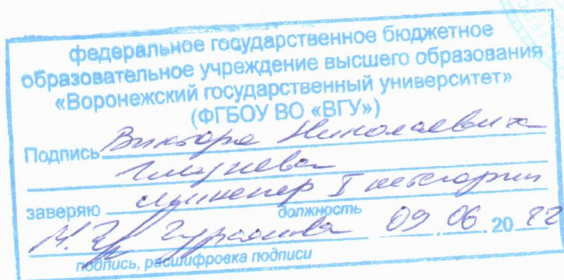 федеральное государственное бюджетное
образовательное учреждение высшего образования
«Воронежский государственный университет»
(ФГБОУ ВО «ВГУ»)
Подпись Виктора Николаевича
заверяю инженер I категории
должность
09.06.2022
подпись, расшифровка подписи